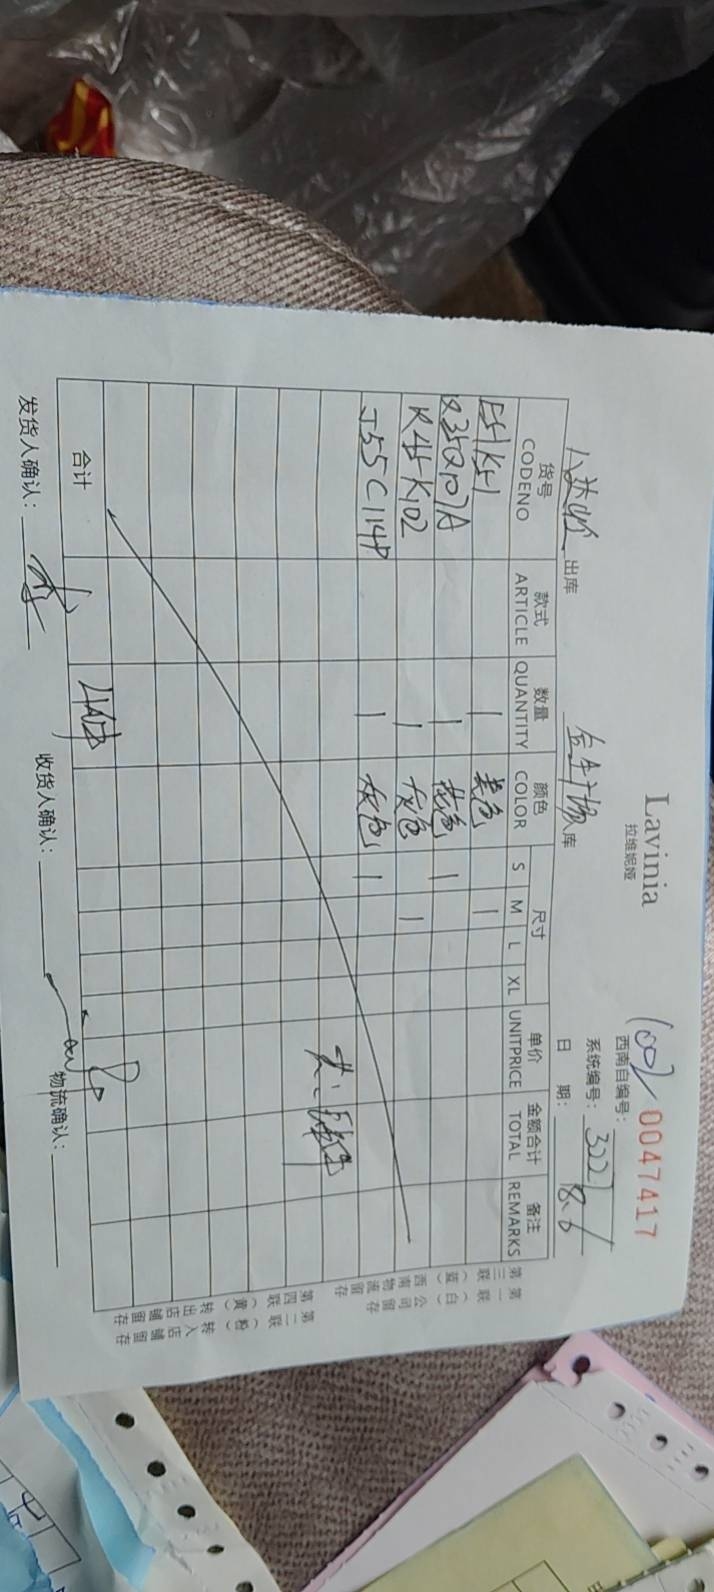 Lavinia
拉维妮娅
0047417
西南自编号:
系统编号: 3227
出库 库 日 期: 8.6
货号 款式 数量 颜色 尺寸 单价 金额合计 备注
CODENO ARTICLE QUANTITY COLOR S M L XL UNITPRICE TOTAL REMARKS
E51K51 1 黄色 1
Q35Q107A 1 花色 1
R45K102 1 灰色 1
J55C114P 1 灰色 1
合计 4件
发货人确认: 收货人确认: 物流确认:
第一联(白)公司留存
第三联(蓝)西南物流留存
第二联(粉)转入店铺留存
第四联(黄)转出店铺留存